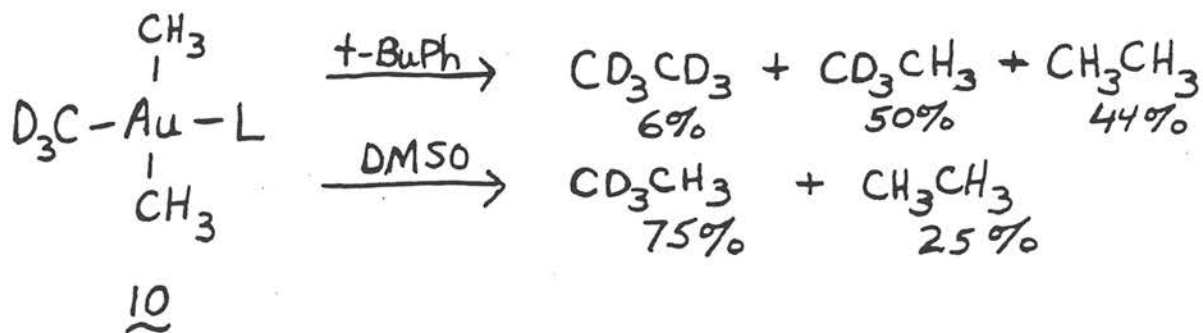 CH3
D3C-Au-L
CH3
10
t-BuPh
CD3CD3 + CD3CH3 + CH3CH3
6% 50% 44%
DMSO
CD3CH3 + CH3CH3
75% 25%